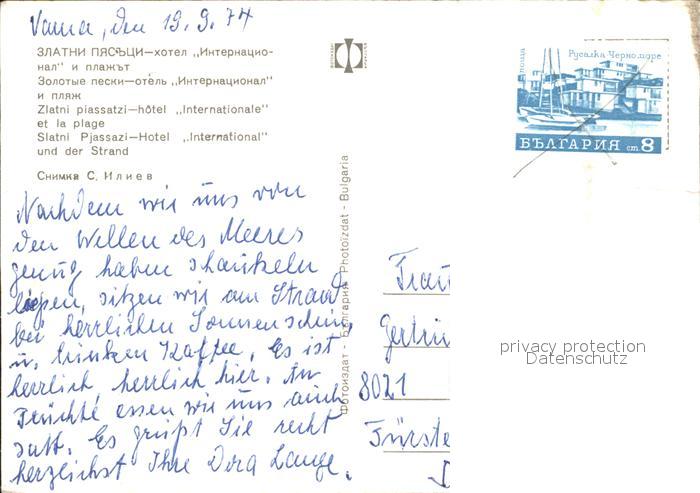 Varna, den 19.9.74
ЗЛАТНИ ПЯСЪЦИ—хотел „Интернацио-
нал" и плажът
Золотые пески—отель „Интернационал"
и пляж
Zlatni piassatzi—hôtel „Internationale"
et la plage
Slatni Pjassazi—Hotel „International"
und der Strand
Снимка С. Илиев
Nachdem wir uns von
den Wellen des Meeres
genug haben schaukeln
ließen, sitzen wir am Strand
bei herrlichem Sonnenschein
u. trinken Kaffee. Es ist
herrlich, herrlich hier. An
Früchte essen wir uns auch
satt. Es grüßt Sie recht
herzlichst Ihre Dora Lange.
Фотоиздат - България Photoizdat - Bulgaria
поща
Русалка Черноморе
БЪЛГАРИЯ ст. 8
Frau
Gertru
8021
Fürste
privacy protection
Datenschutz